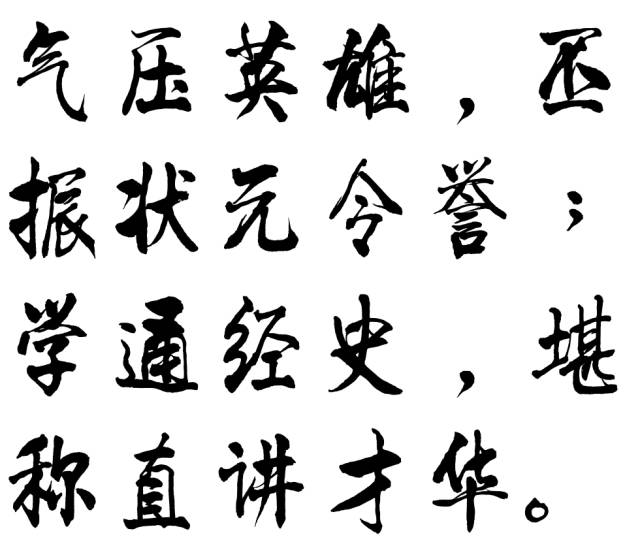 气压英雄，丕
振状元令誉；
学通经史，堪
称直讲才华。